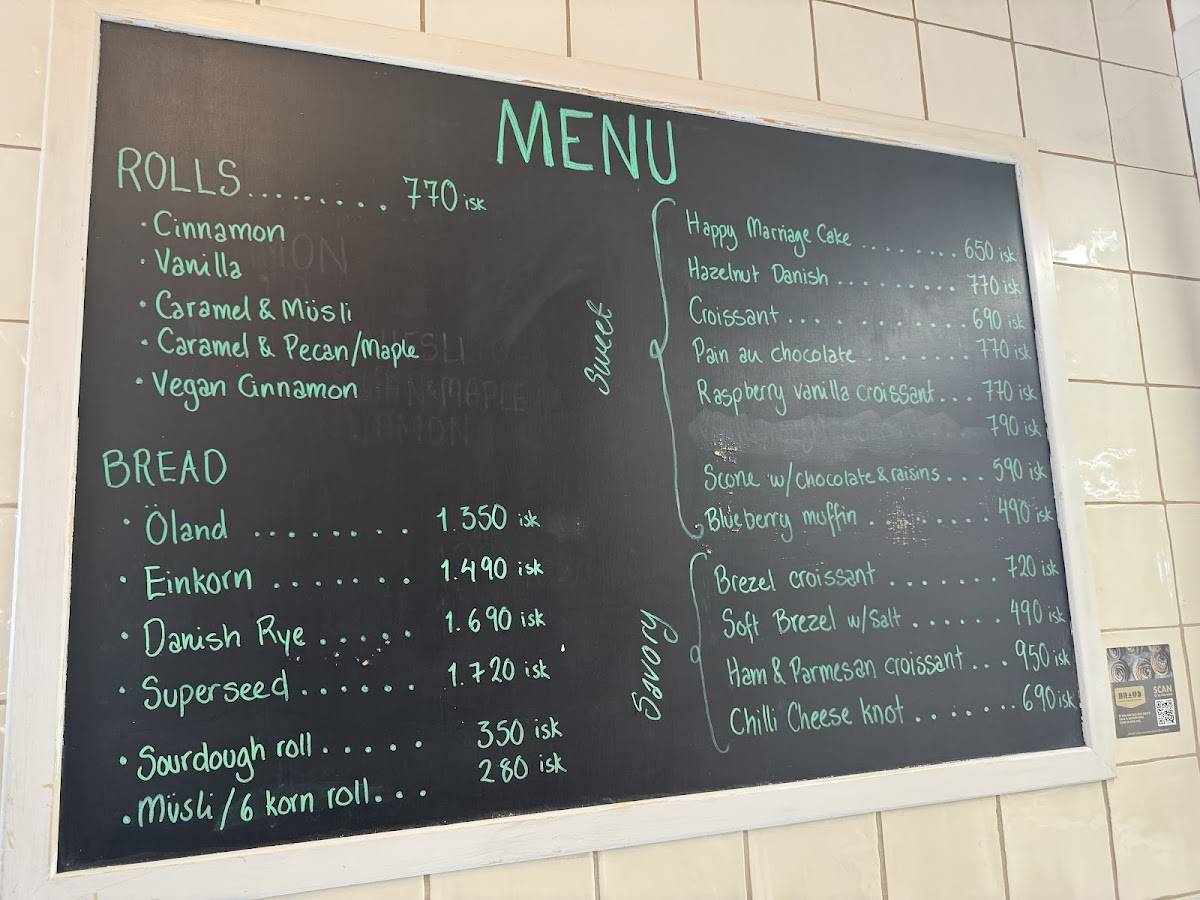 MENU
ROLLS......... 770 isk
· Cinnamon
· Vanilla
· Caramel & Müsli
· Caramel & Pecan/Maple
· Vegan Cinnamon
BREAD
· Öland ....... 1.350 isk
· Einkorn ....... 1.490 isk
· Danish Rye ..... 1.690 isk
· Superseed ...... 1.720 isk
· Sourdough roll ..... 350 isk
· Müsli/6 korn roll... 280 isk
Sweet
Happy Marriage Cake ........ 650 isk
Hazelnut Danish ......... 770 isk
Croissant ............ 690 isk
Pain au chocolate ....... 770 isk
Raspberry vanilla croissant ... 770 isk
790 isk
Scone w/chocolate & raisins ... 590 isk
Blueberry muffin ........ 490 isk
Savory
Brezel croissant ........ 720 isk
Soft Brezel w/Salt ...... 490 isk
Ham & Parmesan croissant ... 950 isk
Chilli Cheese knot ....... 690 isk
BRAUÐ
SCAN